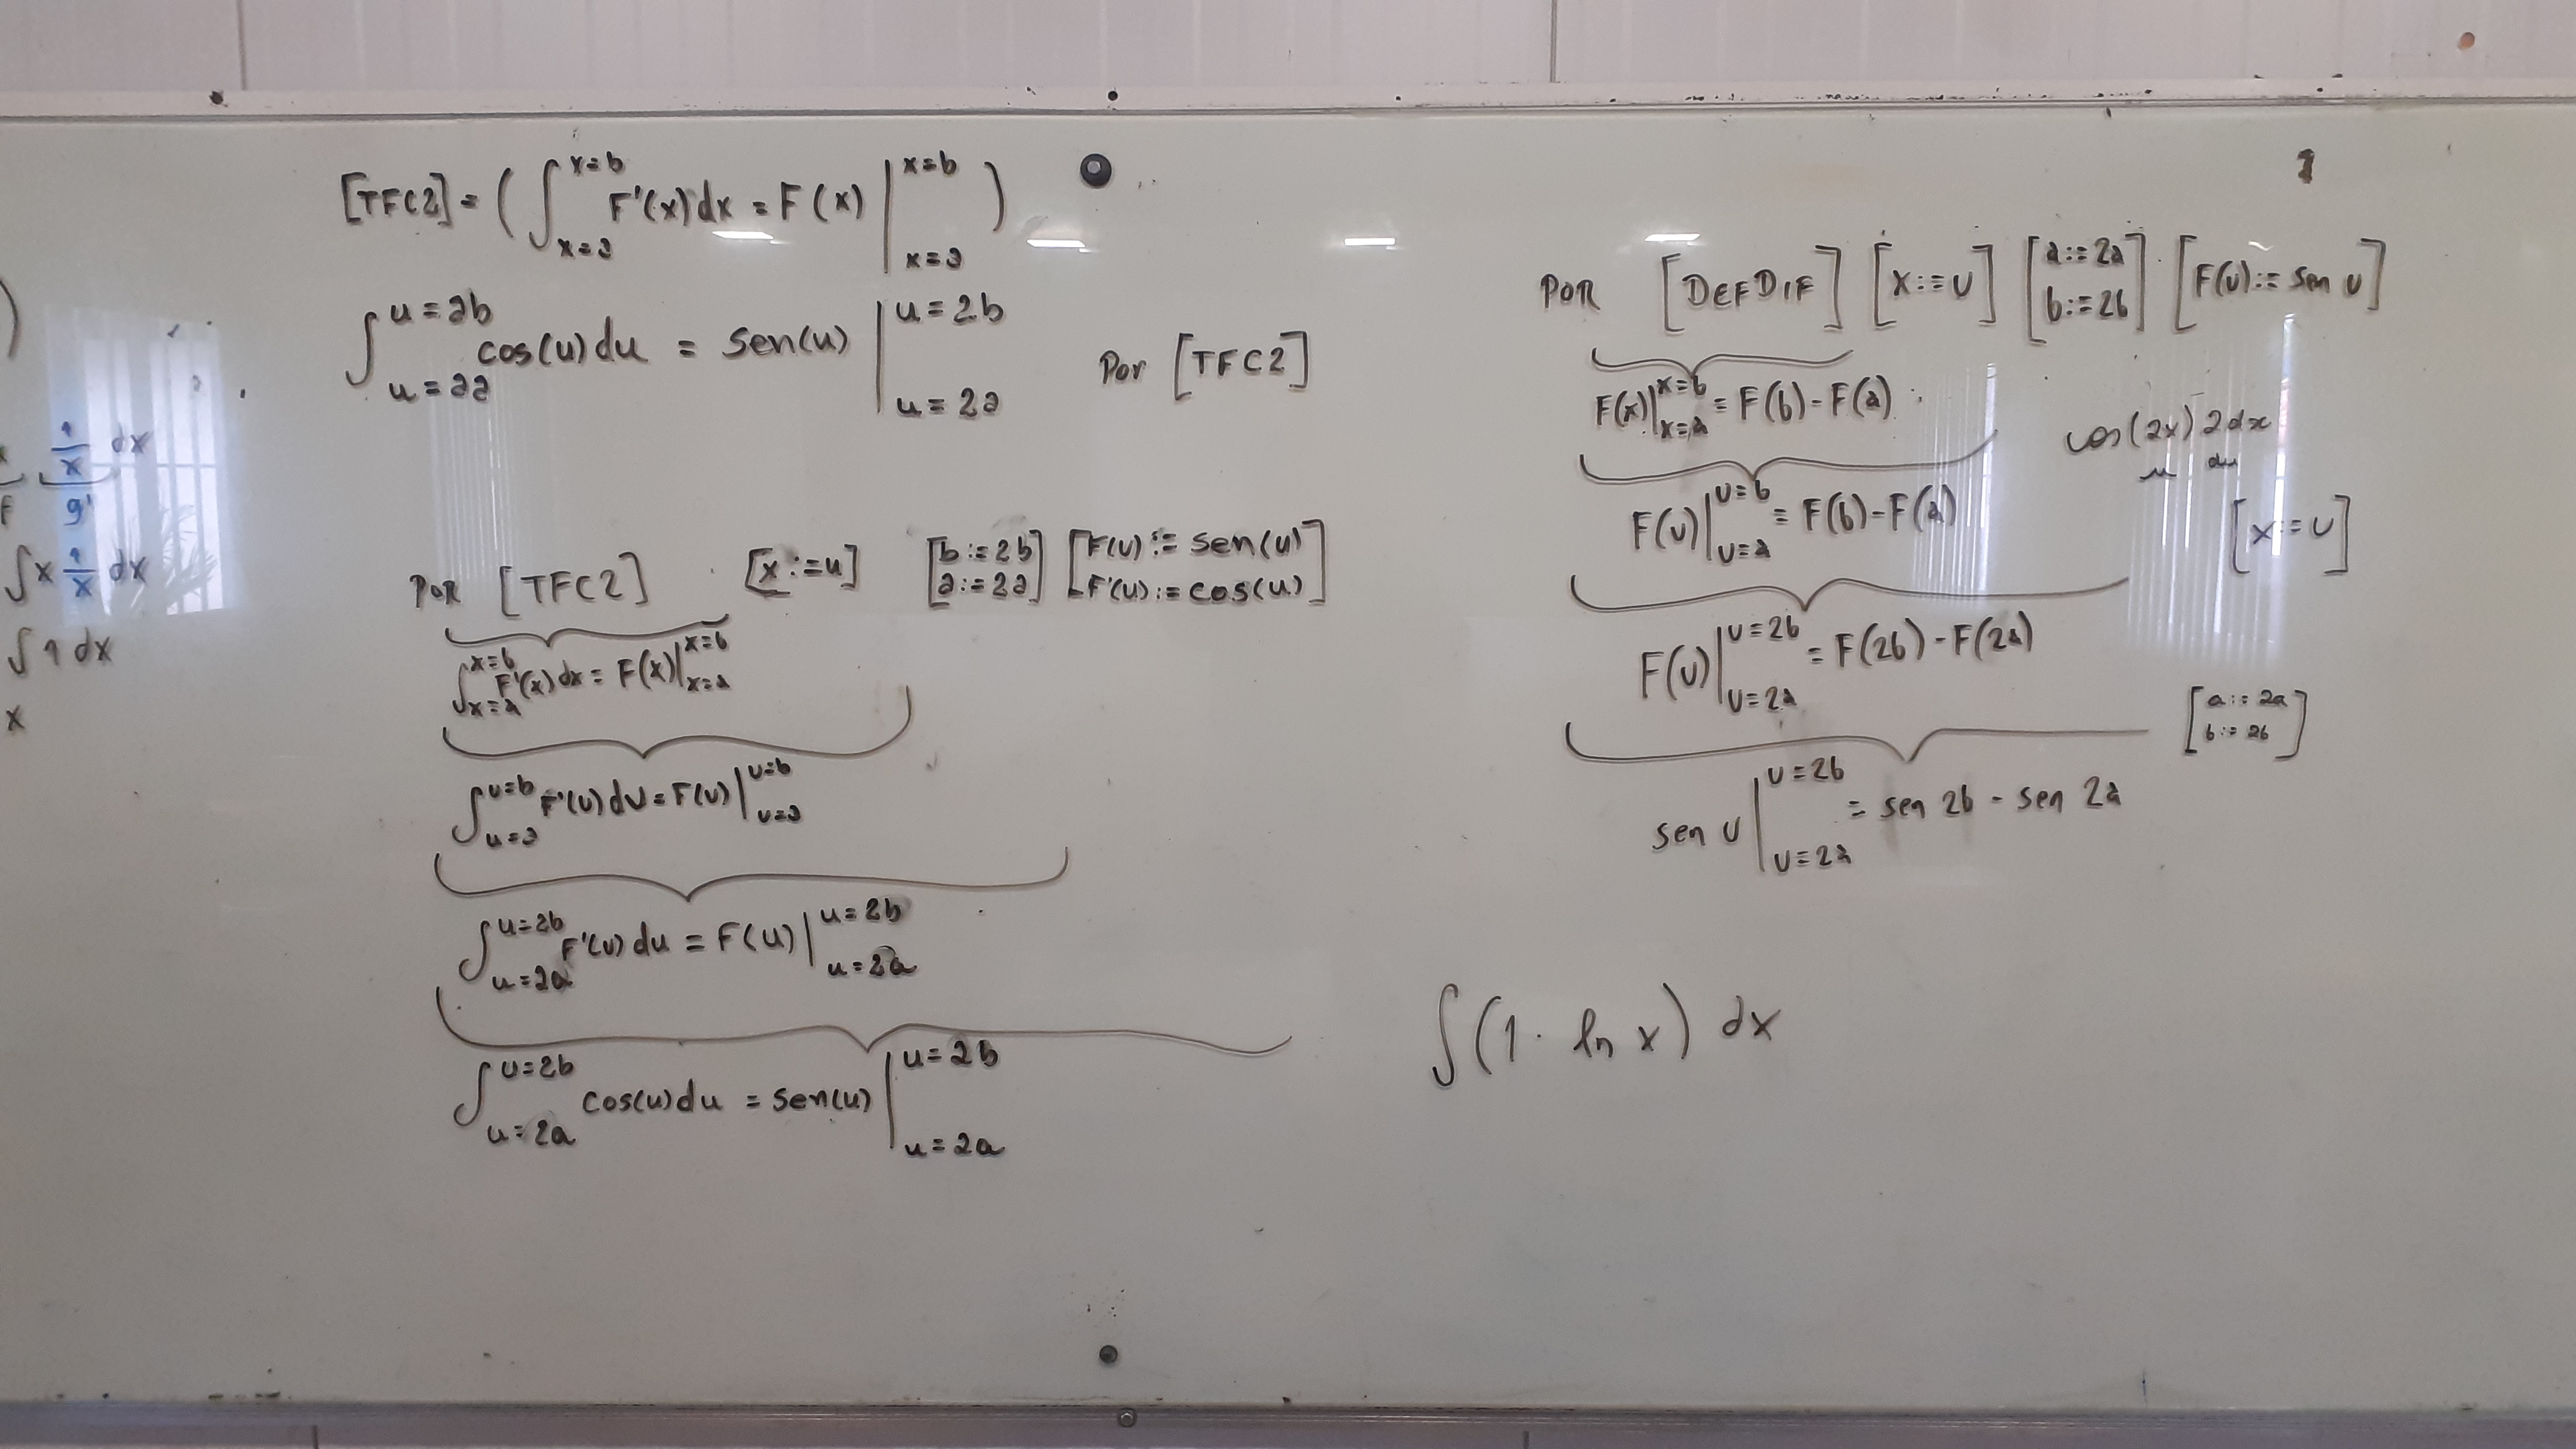 [TFC2] = ( ∫_{x=a}^{x=b} F'(x) dx = F(x) |_{x=a}^{x=b} )
∫_{u=2a}^{u=2b} cos(u) du = sen(u) |_{u=2a}^{u=2b} Por [TFC2]
POR [TFC2] [x:=u] [b:=2b a:=2a] [F(u):=sen(u) F'(u):=cos(u)]
∫_{x=a}^{x=b} F'(x) dx = F(x) |_{x=a}^{x=b}
∫_{u=a}^{u=b} F'(u) du = F(u) |_{u=a}^{u=b}
∫_{u=2a}^{u=2b} F'(u) du = F(u) |_{u=2a}^{u=2b}
∫_{u=2a}^{u=2b} cos(u) du = sen(u) |_{u=2a}^{u=2b}
1/x dx
g'
∫ x 1/x dx
∫ 1 dx
x
1
POR [DEFDIF] [x:=u] [a:=2a b:=2b] [F(u):=sen u]
F(x) |_{x=a}^{x=b} = F(b) - F(a)
cos(2x) 2dx
u du
F(u) |_{u=a}^{u=b} = F(b) - F(a)
[x:=u]
F(u) |_{u=2a}^{u=2b} = F(2b) - F(2a)
[a:=2a b:=2b]
sen u |_{u=2a}^{u=2b} = sen 2b - sen 2a
∫ (1 · ln x) dx